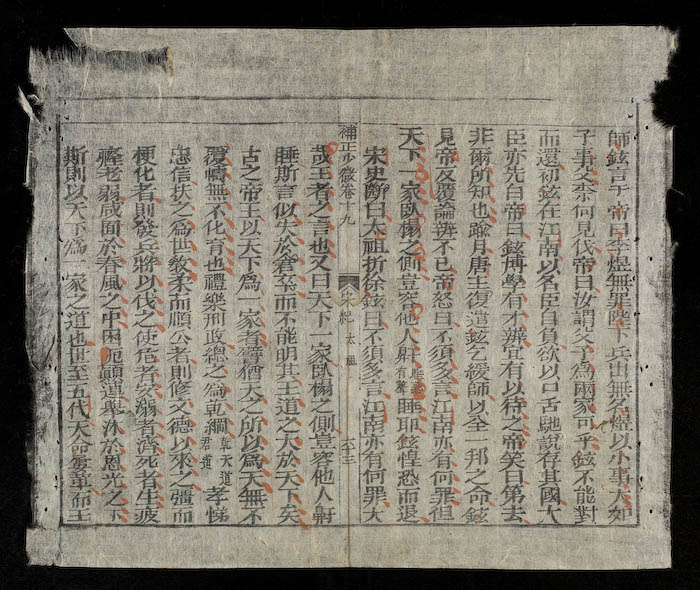 師鉉言于帝曰李煜無罪陛下兵出無名煜以小事大如
子事父柰何見伐帝曰汝謂父子為兩家可乎鉉不能對
而還初鉉在江南以名臣自負欲以口舌馳說存其國大
臣亦先自帝曰鉉博學有才辨宜有以待之帝笑曰第去
非爾所知也踰月唐主復遣鉉乞緩師以全一邦之命鉉
見帝反覆論辨不已帝怒曰不須多言江南亦有何罪但
天下一家臥榻之側豈容他人鼾睡耶鉉惶恐而退
宋史斷曰太祖折徐鉉曰不須多言江南亦有何罪天
補正少微卷十九 宋紀 太祖 六十三
哉王者之言也又曰天下一家臥榻之側豈容他人鼾
睡斯言似失於倉卒而不能明其王道之大於天下矣
古之帝王以天下為一家者譬猶天之所以為天無不
覆幬無不化育也禮樂刑政總之為乾綱乾天道君道孝悌
忠信扶之為世敎柔而順公者則修文德以來之彊而
梗化者則發兵將以伐之使危者安溺者濟死者生疲
癃老弱咸面於春風之中困窮顛連舉沐於恩光之下
斯則以天下為一家之道也世至五代天命屢革而王